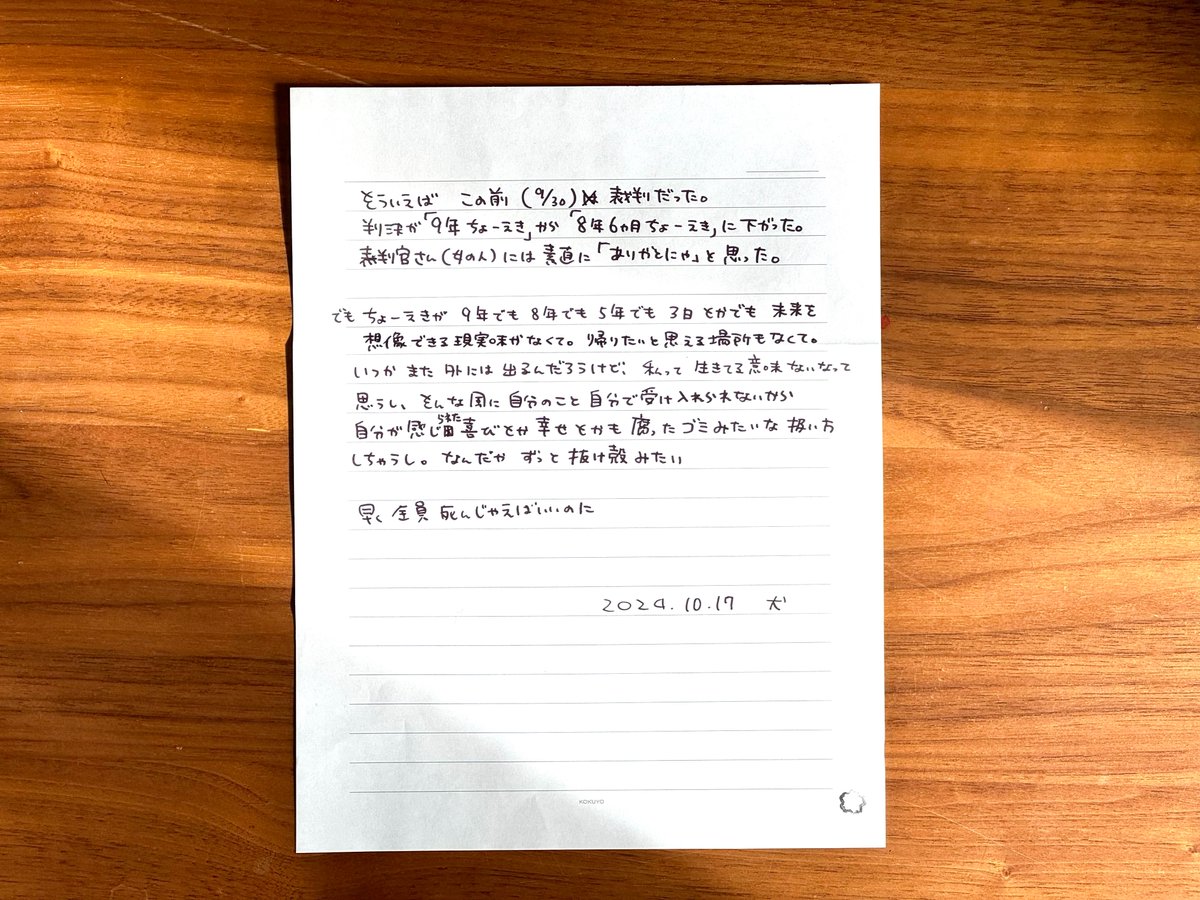 そういえば この前 (9/30) 裁判だった。
判決が「9年ちょーえき」から「8年6ヵ月ちょーえき」に下がった。
裁判官さん(女の人)には素直に「ありがとにゃ」と思った。
でも ちょーえきが 9年でも 8年でも 5年でも 3日とかでも 未来を
想像できる現実味がなくて。帰りたいと思える場所もなくて。
いつか また 外には 出るんだろうけど、私って 生きてる意味ないなって
思うし、そんな風に自分のこと 自分で受け入れられないから
自分が感じられた喜びとか 幸せとかも 腐ったゴミみたいな 扱い方
しちゃうし。なんだか ずっと 抜け殻みたい
早く 全員 死んじゃえばいいのに
2024.10.17 犬
KOKUYO